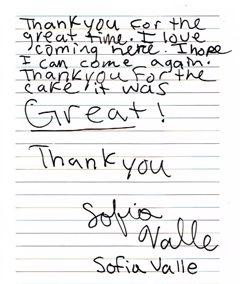 Thankyou for the
great time. I love
coming here. I hope
I can come again.
Thankyou for the
cake it was
Great!
Thank you
Sofia
Valle
Sofia Valle